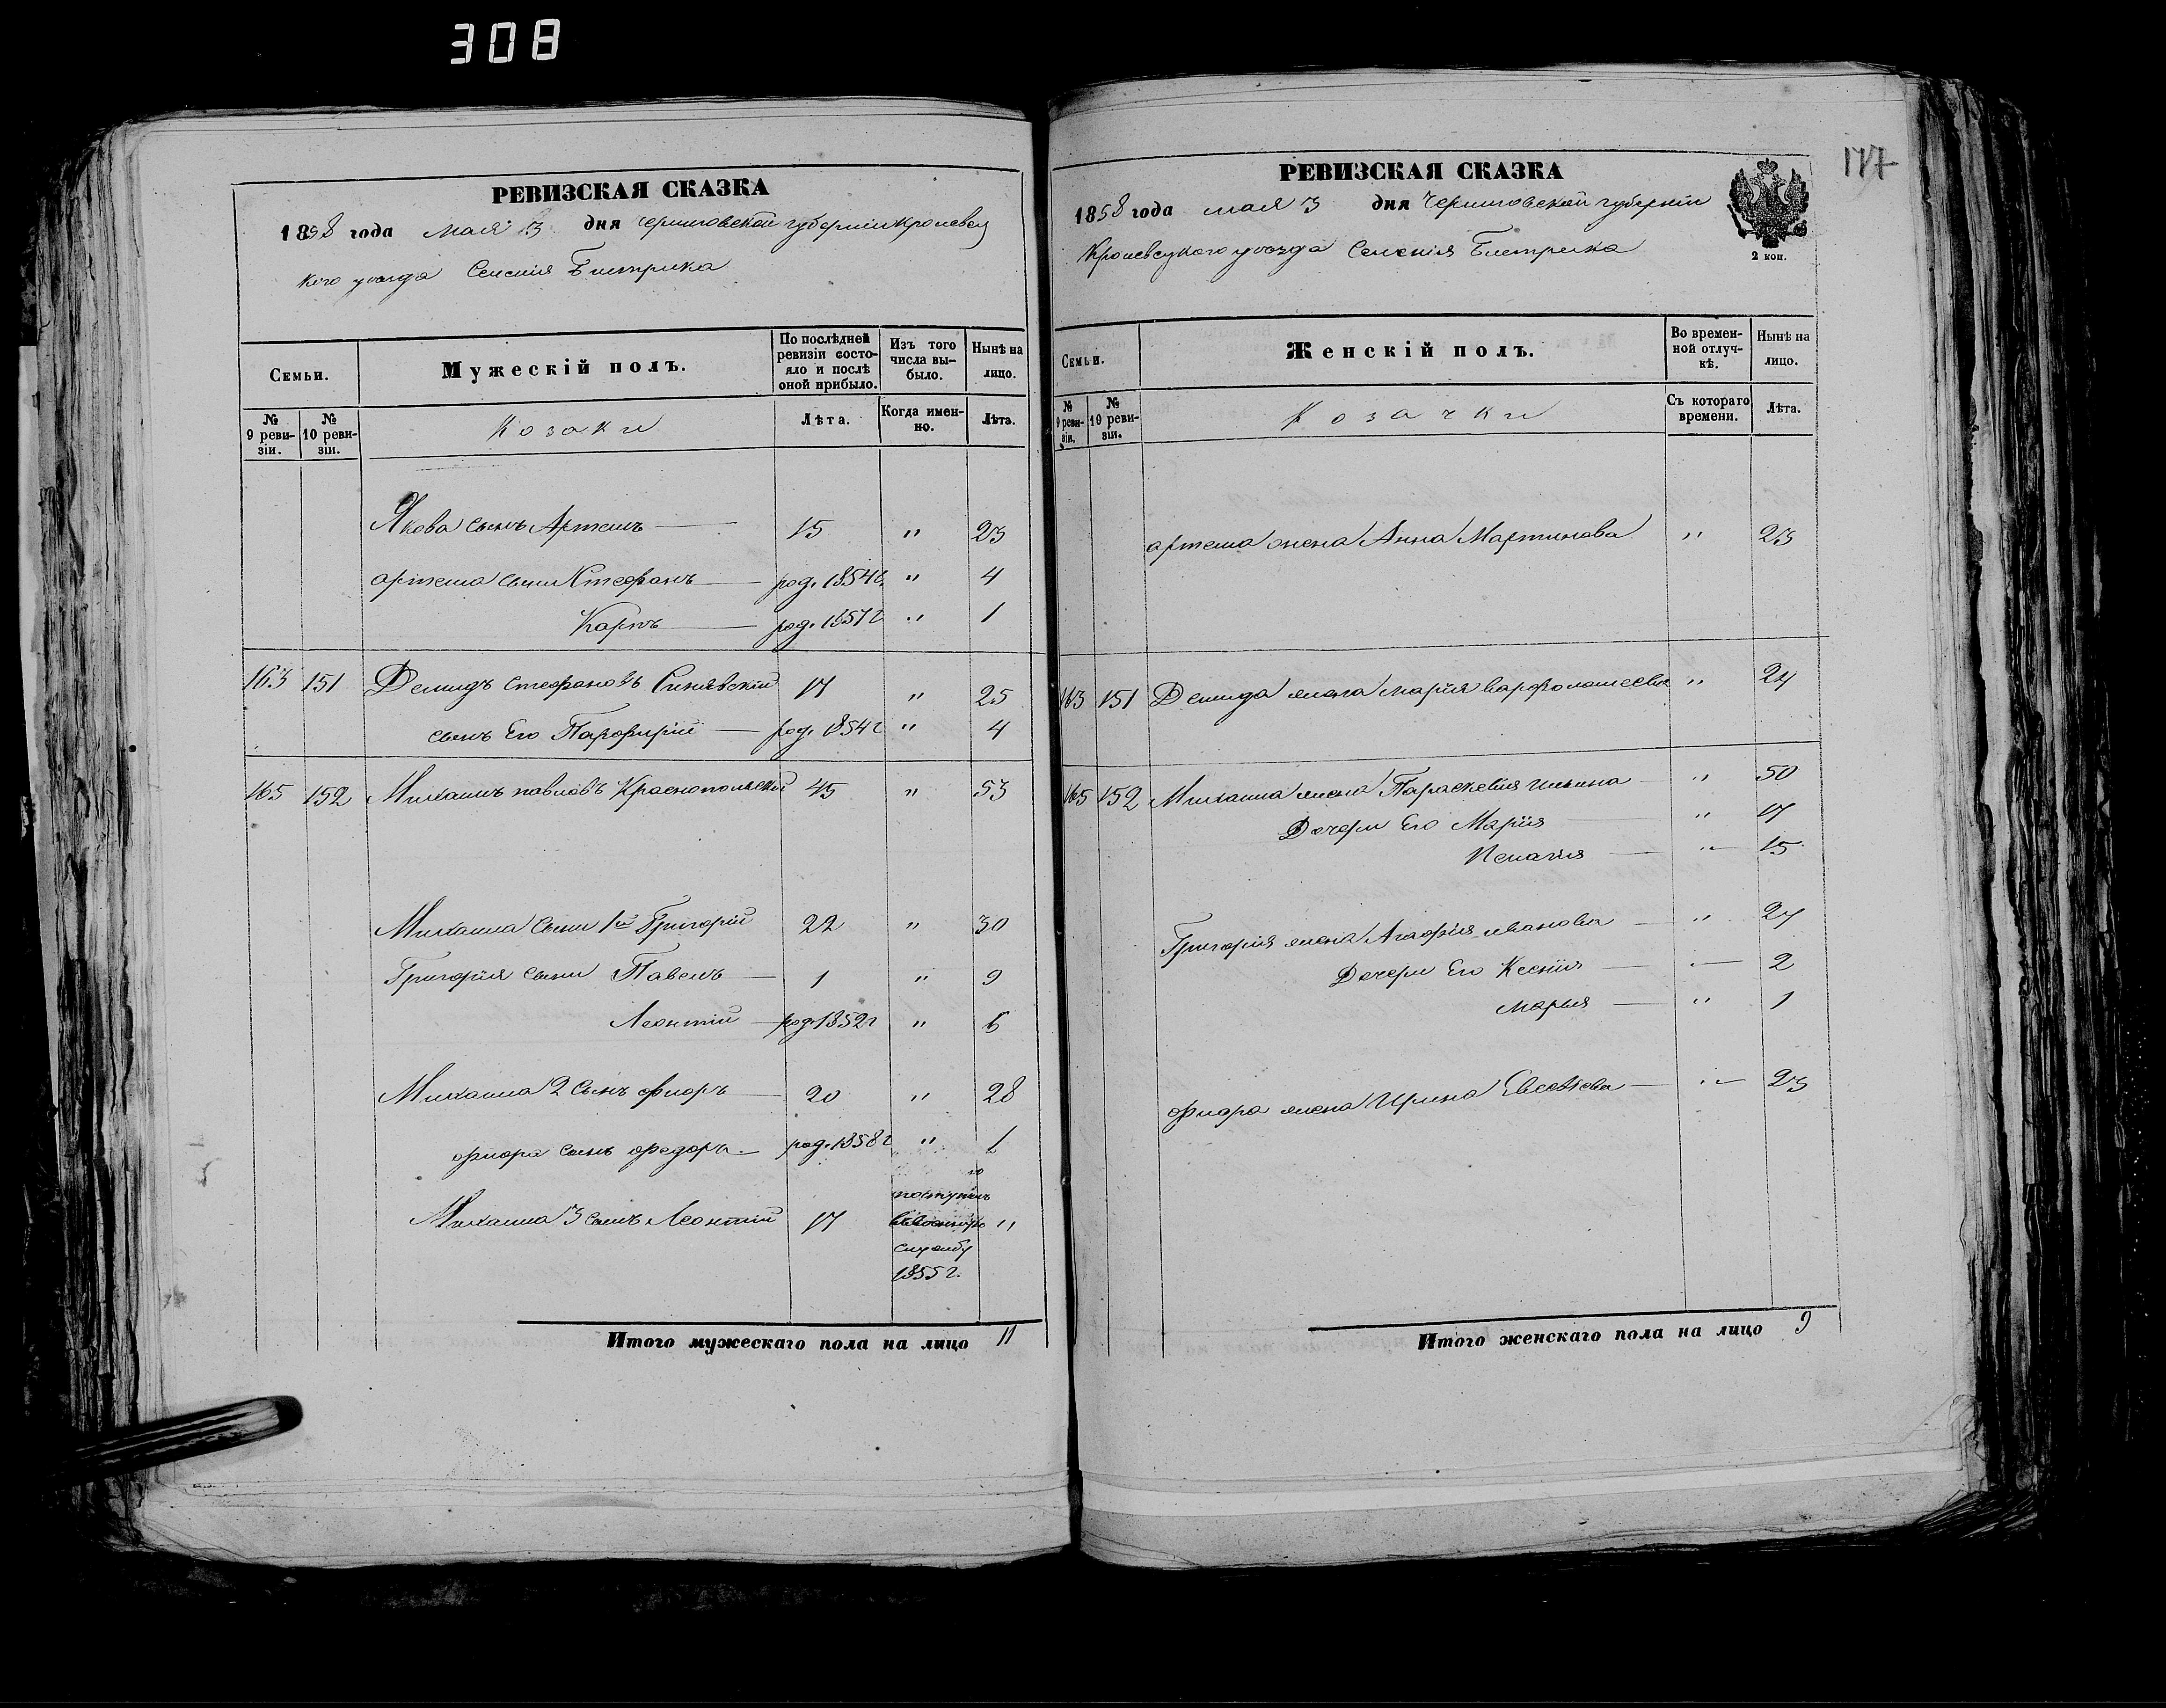 308
РЕВИЗСКАЯ СКАЗКА
1858 года мая 3 дня Черниговской губерніи Кролевец
кого уезда Селенія Бистрика
Семьи.
Мужескій полъ.
По послѣдней ревизіи состояло и послѣ оной прибыло.
Изъ того числа выбыло.
Нынѣ на лицо.
№ 9 ревизіи.
№ 10 ревизіи.
Козаки
Лѣта.
Когда именно.
Лѣта.
Якова сынъ Артемъ 15 " 23
артема сыни Стефанъ род. 1854 г. " 4
Карпъ род. 1857 г " 1
163 151 Демидъ Стефановъ Синявскій 17 " 25
сынъ Его Парфирій род. 1854 г " 4
165 152 Михаилъ павловъ Краснопольскій 45 " 53
Михаила сыни 1й Григорій 22 " 30
Григорія сыни Павелъ 1 " 9
Леонтій род. 1852 г " 6
Михаила 2 сынъ флоръ 20 " 28
флора сынъ федоръ род. 1858 г " 1
Михаила 3 сынъ Леонтій 17 поступилъ "
службу
1855 г.
Итого мужескаго пола на лицо 11
177
РЕВИЗСКАЯ СКАЗКА
1858 года мая 3 дня Черниговской губерніи
Кролевецкого уезда Селенія Бистрика
2 коп.
Семьи.
Женскій полъ.
Во временной отлучкѣ.
Нынѣ на лицо.
№ 9 ревизіи.
№ 10 ревизіи.
Козачки
Съ котораго времени.
Лѣта.
артема жена Анна Мартинова " 23
163 151 Демида жена Марія варфоломеева " 24
165 152 Михаила жена Параскевия ильина " 50
Дочери Его Марія " 17
Пелагія " 15
Григорія жена Агафія иванова " 27
Дочери Его Ксенія " 2
марья " 1
флора жена Ирина Евсеѣва " 23
Итого женскаго пола на лицо 9